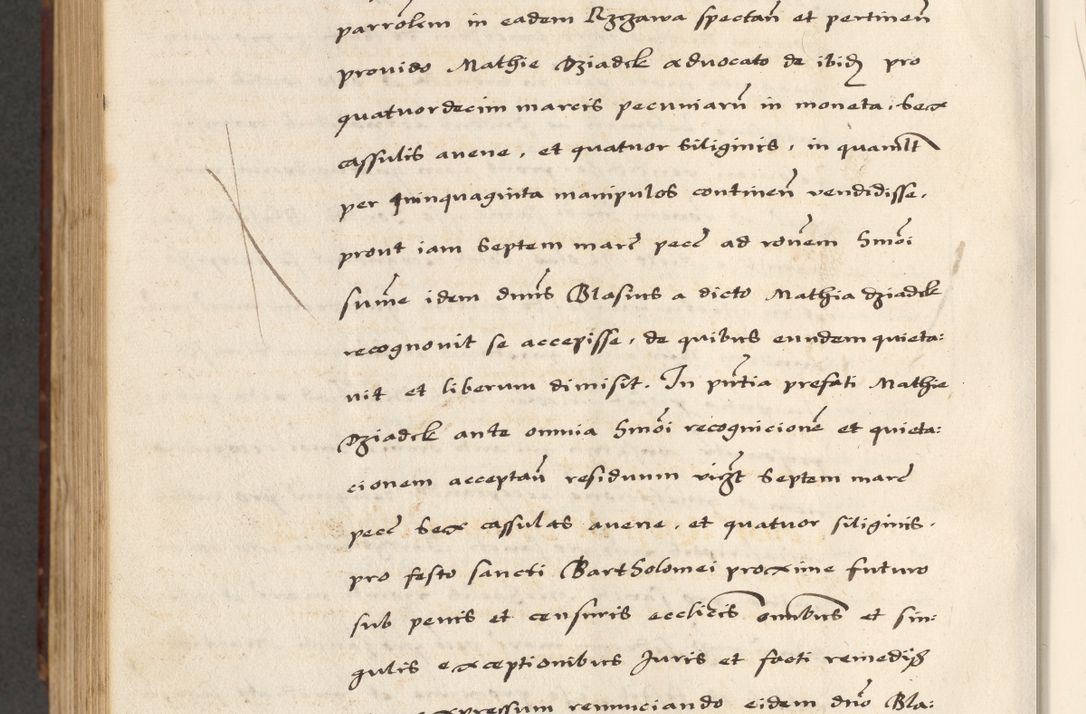 parrotem in eadem Rzgawa spectan̄ et pertinen̄
prouido Mathie Dziadek aduocato de ibid pro
quatuordecim marcis pecuniarū in moneta, sex
cassulis auene, et quatuor siliginis, in qualt
per quinquaginta manipulos continen̄ vendidisse,
prout iam septem marc̄ pecc̄ ad ronem hmōi
sum̄e idem dnus Blasius a dicto Mathia dziadek
recognouit se accepisse, de quibus eundem quieta:
uit et liberum dimisit. In pn̄tia prefati Mathie
Dziadek ante omnia hmōi recognicionē et quieta:
cionem acceptan̄ residuum vizt septem marc̄
pecc̄ sex cassulas auene, et quatuor siliginis,
pro festo sancti Bartholomei proxime futuro
sub penis et censuris eccliēis omnibus et sin:
gulis exceptionibus Juris et facti remedijs
expressum renunciando eidem dn̄o Bla: